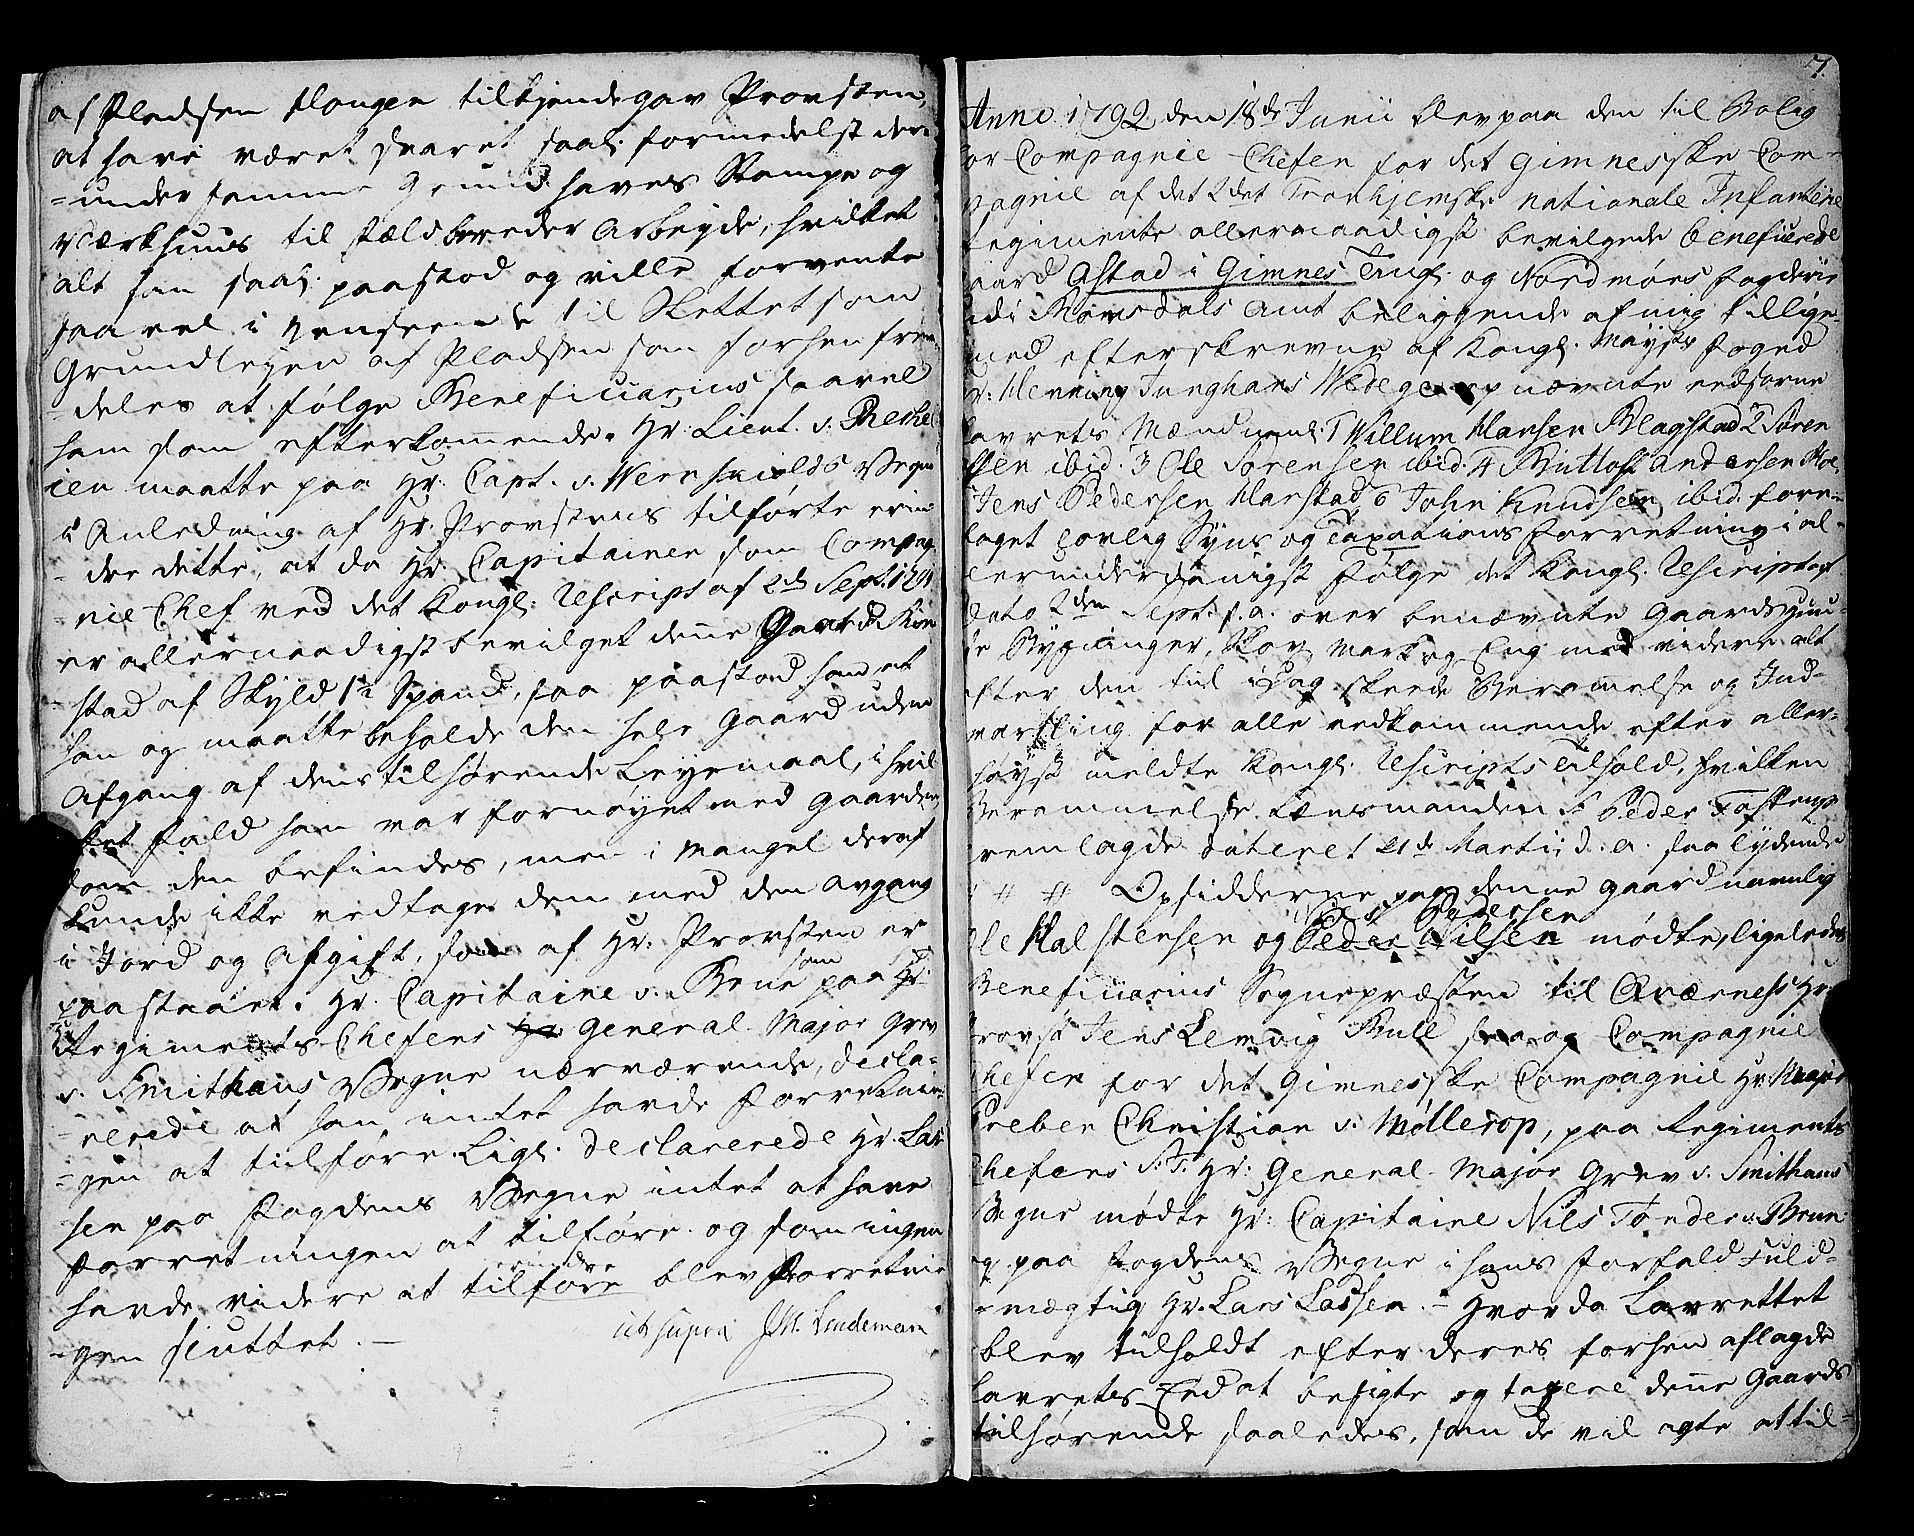 af Pladsen Haugen tilkjendegav Provsten,
at have været svaret saal. formedelst der-
=under samme Grund haves Stampe og
Værkhuus til Fældbereder Arbeyde, hvilket
alt han saal. paastod og ville forvente
saavel i Henseende til Slettet som
Grundleyen af Pladsen som forhen frem-
=deles at følge Beneficiarius saavel
ham som efterkommende. Hr: Lieut. v.
maatte paa Hr: Capt. v. Wernskiolds Vegne
i Anledning af Hr. Provstens tilførte erin-
=dre dette, at da Hr. Capitainen som Compag-
nie-Chef ved det Kongl: Rescript af 2de Sept. 1791
er allernaadigst bevilget denne Gaard
stad af Skyld 1½ Spand, saa paastod han at
han og maatte beholde den hele Gaard uden
Afgang af dens tilhørende Leyemaal, i hvil-
ket Fald han var fornøyet med Gaarden
som den befindes, men i Mangel deraf
kunde ikke vedtage den med den Avgang
i Jord og Afgift, som af Hr: Provsten er
paastaaet. Hr. Capitaine v. Brun som paa Hr:
Regiments-Chefens General-Major Grev
v. Smithaus Vegne nærværende, decla-
=rerede at han intet havde Forretnin-
=gen at tilføre. Ligl. declarerede Hr. Las-
sen paa Fogdens Vegne intet at have
Forretningen at tilføre. og som ingen
havde videre at tilføre erindre blev Forretnin-
=gen sluttet. –
ut supra J.H. Lindemann
7.
Anno 1792 den 18de Junii blev paa den til Bolig
for Compagnie-Chefen for det Gimnesske Com-
pagnie af det 2det Tronhjemske nationale Infanterie
Regimente allernaadigst bevilgede beneficerede
Gaard Astad i Gimnes Tingl. og Nordmørs Fogderie
udi Romsdals Amt beliggende af mig tillige-
med efterskrevne af Kongl. Mayts Foged
Hr: Henning Junghans Wedege opnævnte eedsorne
Lavrets Mænd navnl. 1 Willum Hansen Blagstad 2 Søren
ibid. 3 Ole Sørensen ibid. 4 Andersen
Jens Pedersen Harstad 6 John Knudsen ibid. fore-
taget Lovlig Syns og Taxations Forretning i al-
lerunderdanigst Følge det Kongl. Rescript af
Dato 2den Sept: f. a. over benævnte Gaards Huu-
se Bygninger, Skov, Mark og Eng med videre alt
efter den til i Dag skeede Berammelse og Ind-
varsling for alle vedkommende efter aller-
høyst meldte Kongl. Rescripts Tilhold, hvilken
Berammelse Lensmanden Peder
fremlagde dateret 21de Martii d. a. saa lydende
# # # Opsidderne paa denne Gaard navnlig
Ole Halstensen og Peder Nilsen Pedersen mødte, ligeledes
Beneficiarius Sognepræsten til Qværness Hr:
Provst Jens Lemvig Bull saa og Compagnie
Chefen for det Gimnesske Compagnie Hr. Major
Preben Christian v. Møllerop, paa Regiments
Chefens S:T. Hr: General-Major Grev v. Smithaus
Vegne mødte Hr: Capitaine Nils Tønder v. Brun
og paa Fogdens Vegne i hans Forfald Fuld-
=mægtig Hr. Lars Lassen. – Hvorda Lavrettet
blev tilholdt efter deres forhen aflagde
Lavrets Eed at besigte og taxere denne Gaards
tilhørende saaledes, som de vil agte at til-